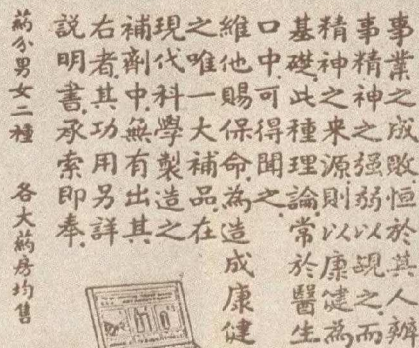 事業之成敗恒於其人辦
事精神之强弱以覘之而
精神之来源則以康健為
基礎此種理論常於醫生
口中可得聞之
維他賜保命為造成康健
之唯一大補品在
現代科學製造之
補劑中無有出其
右者其功用另詳
説明書承索即奉
药分男女二種 各大药房均售